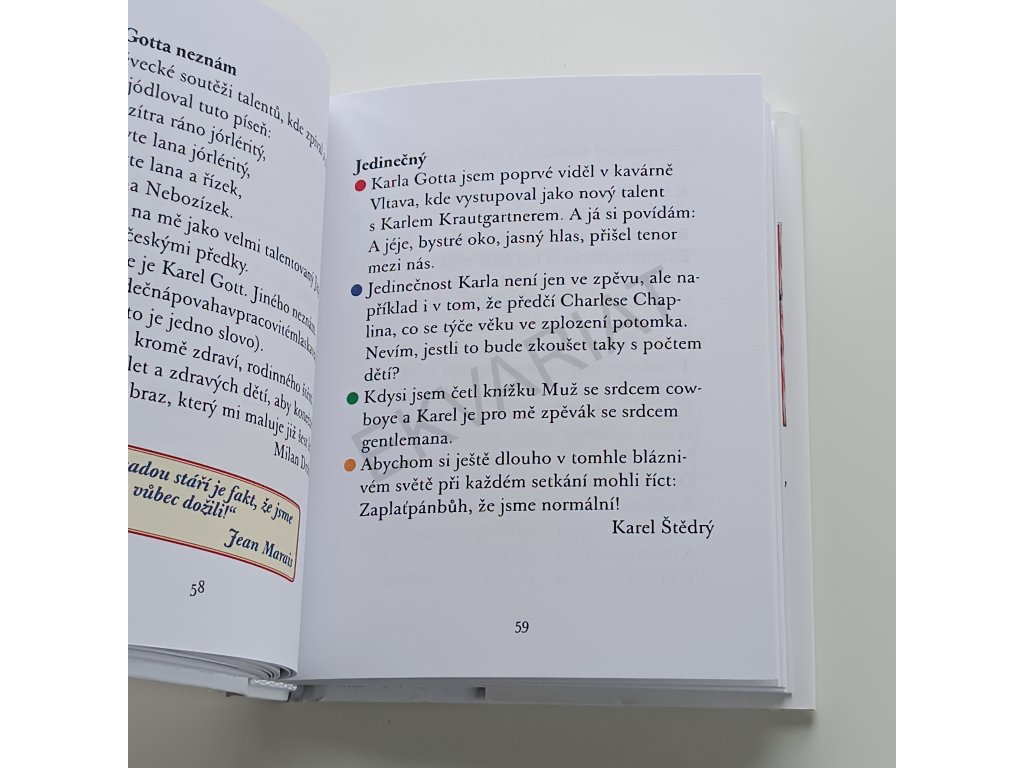 Gotta neznám
vecké soutěži talentů, kde zpíval
jódloval tuto píseň:
zítra ráno jórléritý,
te lana jórléritý,
te lana a řízek,
a Nebozízek.
na mě jako velmi talentovaný
českými předky.
e je Karel Gott. Jiného neznám
to je jedno slovo).
kromě zdraví, rodinného
let a zdravých dětí, aby
braz, který mi maluje již šest
Milan
adou stáří je fakt, že jsme
vůbec dožili!“
Jean Marais
58
Jedinečný
Karla Gotta jsem poprvé viděl v kavárně
Vltava, kde vystupoval jako nový talent
s Karlem Krautgartnerem. A já si povídám:
A jéje, bystré oko, jasný hlas, přišel tenor
mezi nás.
Jedinečnost Karla není jen ve zpěvu, ale na-
příklad i v tom, že předčí Charlese Chap-
lina, co se týče věku ve zplození potomka.
Nevím, jestli to bude zkoušet taky s počtem
dětí?
Kdysi jsem četl knížku Muž se srdcem cow-
boye a Karel je pro mě zpěvák se srdcem
gentlemana.
Abychom si ještě dlouho v tomhle blázni-
vém světě při každém setkání mohli říct:
Zaplaťpánbůh, že jsme normální!
Karel Štědrý
59
EKVARIAT